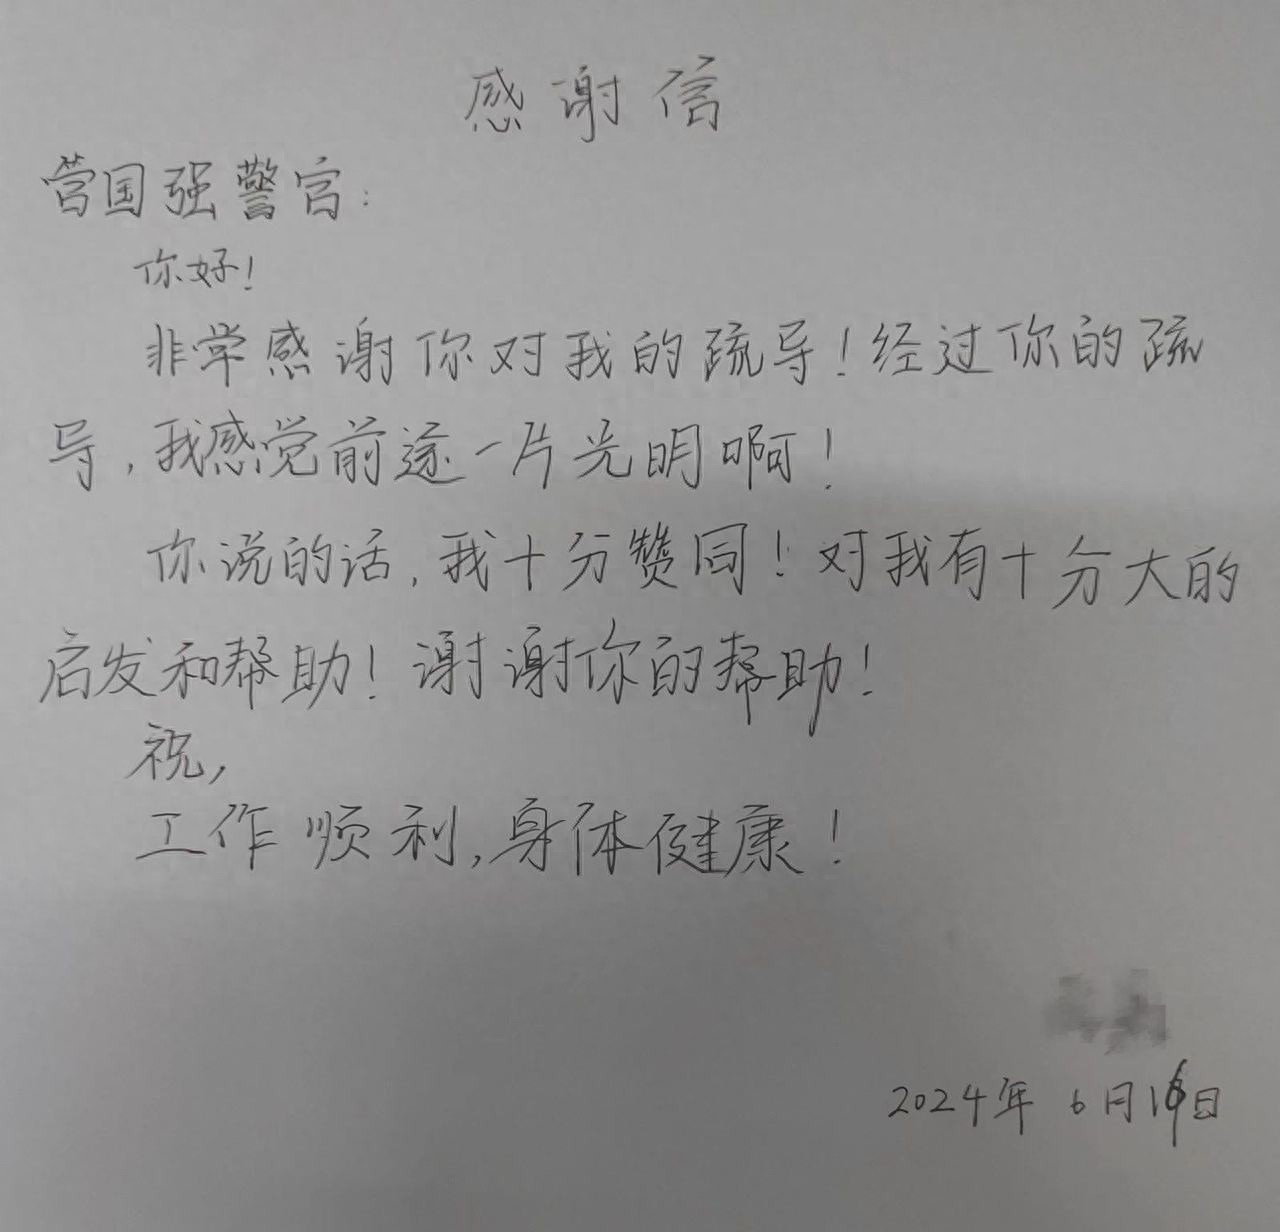 感谢信
营国强警官：
你好！
非常感谢你对我的疏导！经过你的疏
导，我感觉前途一片光明啊！
你说的话，我十分赞同！对我有十分大的
启发和帮助！谢谢你的帮助！
祝，
工作顺利，身体健康！
2024年 6月 日